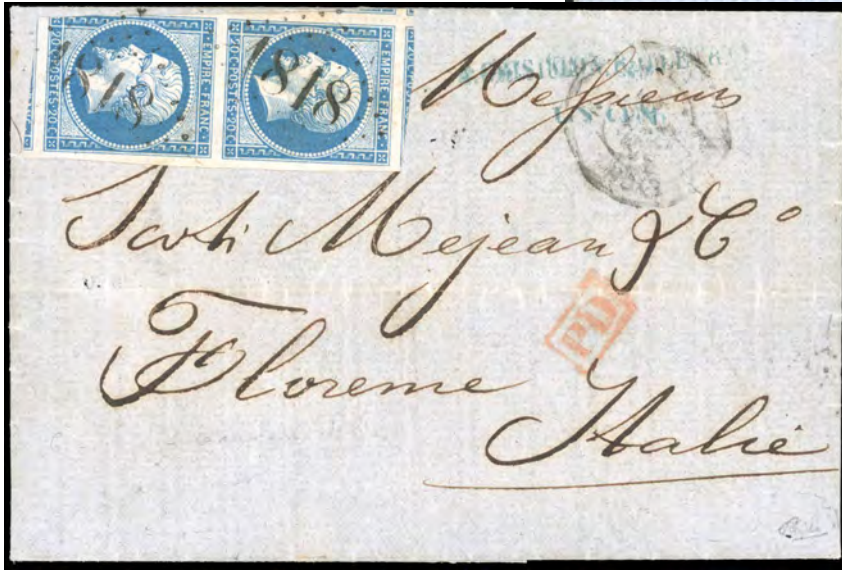 EMPIRE FRANC
20 C POSTES 20 C
1818
EMPIRE FRANC
20 C POSTES 20 C
1818
Messieurs
Scoti Mejean & Cº
PD
Florence
Italie